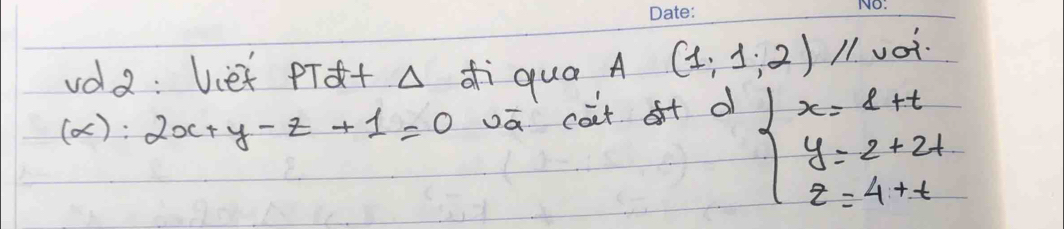 Date: No:
vd2: Viết PTđt Δ đi qua A (1; 1; 2) // với.
(α): 2x + y - z + 1 = 0 và cắt đt d { x = 1 + t
y = 2 + 2t
z = 4 + t